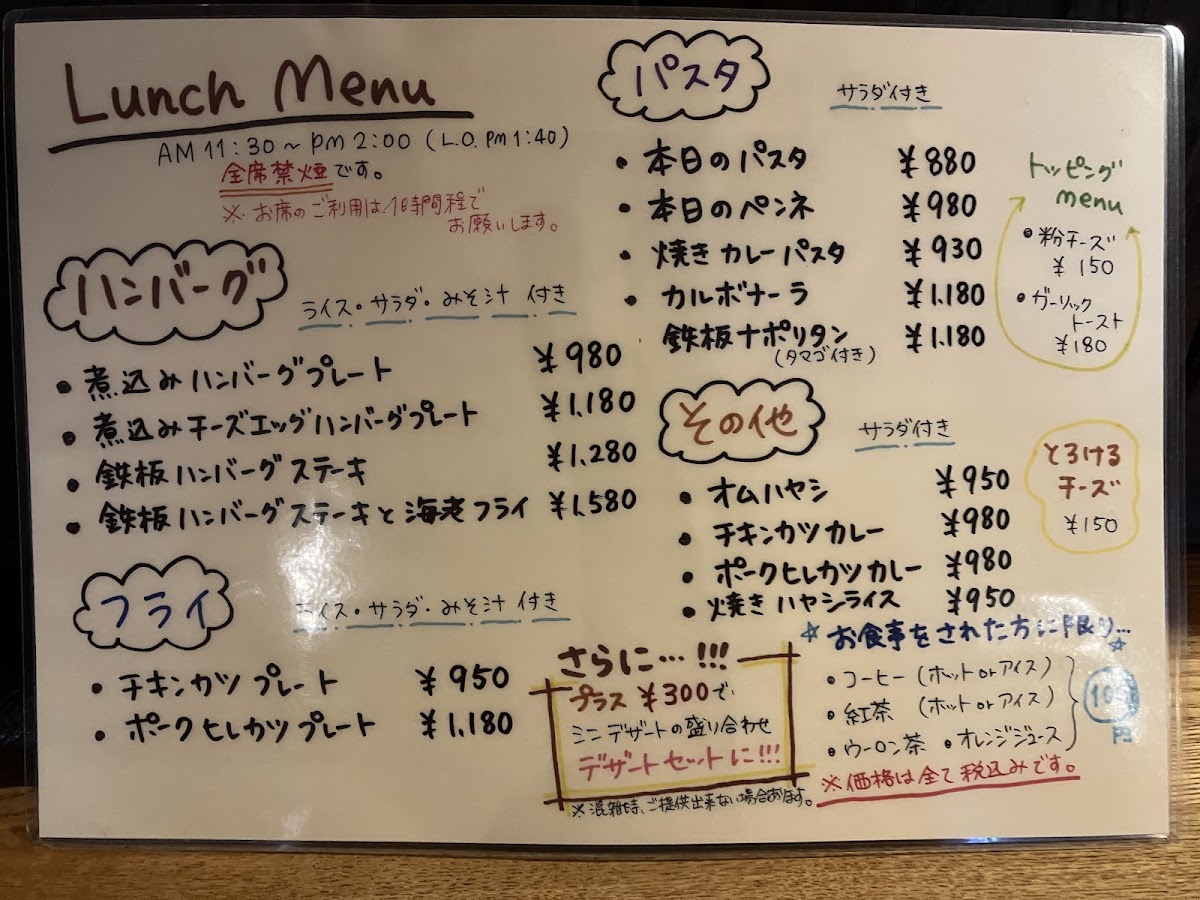 Lunch Menu
AM 11:30〜PM 2:00 (L.O. PM 1:40)
全席禁煙です。
※お席のご利用は、1時間程で
お願いします。
ハンバーグ
ライス・サラダ・みそ汁 付き
・煮込みハンバーグプレート ¥980
・煮込みチーズエッグハンバーグプレート ¥1.180
・鉄板ハンバーグステーキ ¥1.280
・鉄板ハンバーグステーキと海老フライ ¥1.580
フライ
ライス・サラダ・みそ汁 付き
・チキンカツプレート ¥950
・ポークヒレカツプレート ¥1.180
パスタ
サラダ付き
・本日のパスタ ¥880
・本日のペンネ ¥980
・焼きカレーパスタ ¥930
・カルボナーラ ¥1.180
鉄板ナポリタン ¥1.180
(タマゴ付き)
トッピング
menu
・粉チーズ
¥150
・ガーリック
トースト
¥180
その他
サラダ付き
・オムハヤシ ¥950
・チキンカツカレー ¥980
・ポークヒレカツカレー ¥980
・焼きハヤシライス ¥950
とろける
チーズ
¥150
さらに…!!!
プラス ¥300で
ミニデザートの盛り合わせ
デザートセットに!!!
※混雑時、ご提供出来ない場合あります。
☆お食事をされた方に限り…☆
・コーヒー (ホット or アイス)
・紅茶 (ホット or アイス)
・ウーロン茶 ・オレンジジュース
※価格は全て税込みです。